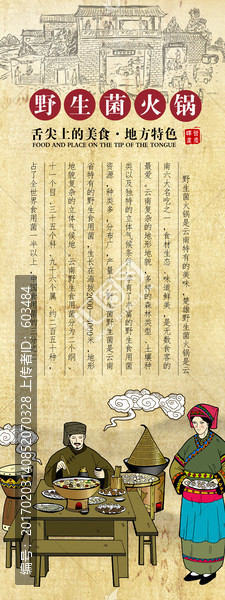 野生菌火锅
舌尖上的美食·地方特色
FOOD AND PLACE ON THE TIP OF THE TONGUE
野生菌火锅是云南特有的美味,楚雄野生菌火锅是云
南六大名吃之一,食材生态,味道鲜美,是无数食客的
最爱。云南复杂的地形地貌,多样的森林类型,土壤种
类以及独特的立体气候条件,孕育了丰富的野生食用菌
资源,种类多,分布广,产量大,
省特有的野生食用菌,生长在海拔2000-4000米,地形
地貌复杂的立体气候地。云南野生食用菌分为二个纲、
十一个目、三十五个科、九十六个属、约二百五十种,
占了全世界食用菌一半以上
编号:20170203140852070328 603484